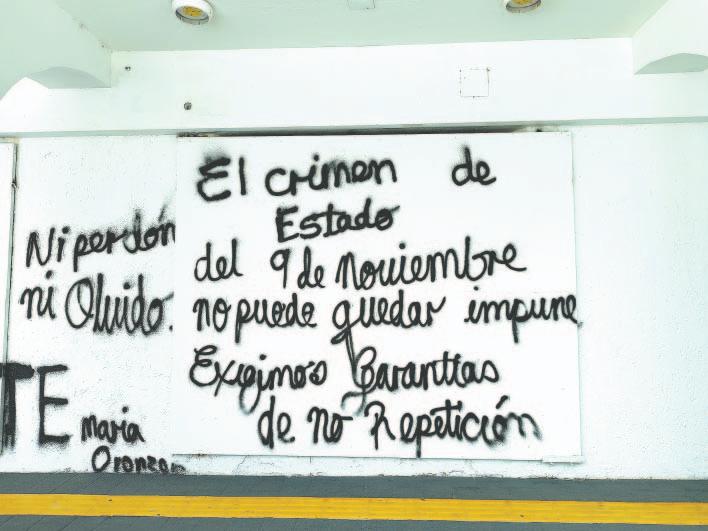 Ni perdón
ni Olvido.
TE
Maria
El crimen de
Estado
del 9 de Noviembre
no puede quedar impune
Exigimos Garantías
de no Repetición